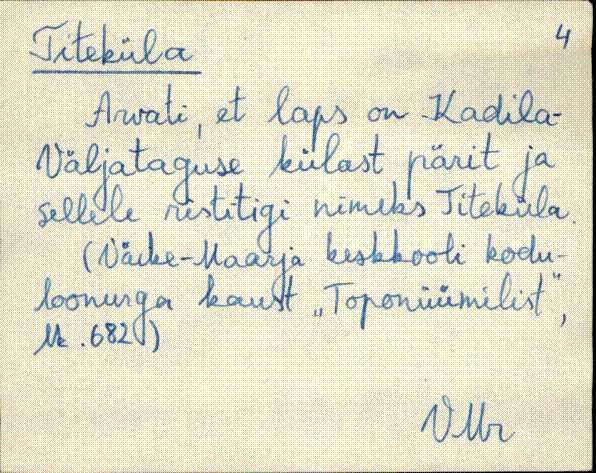 Titeküla
4
Arvati, et laps on Kadila-
Väljataguse külast pärit ja
sellele ristitigi nimeks Titeküla.
(Väike-Maarja keskkooli kodu-
loonurga kaust „Toponüümilist”,
lk. 682)
VMr